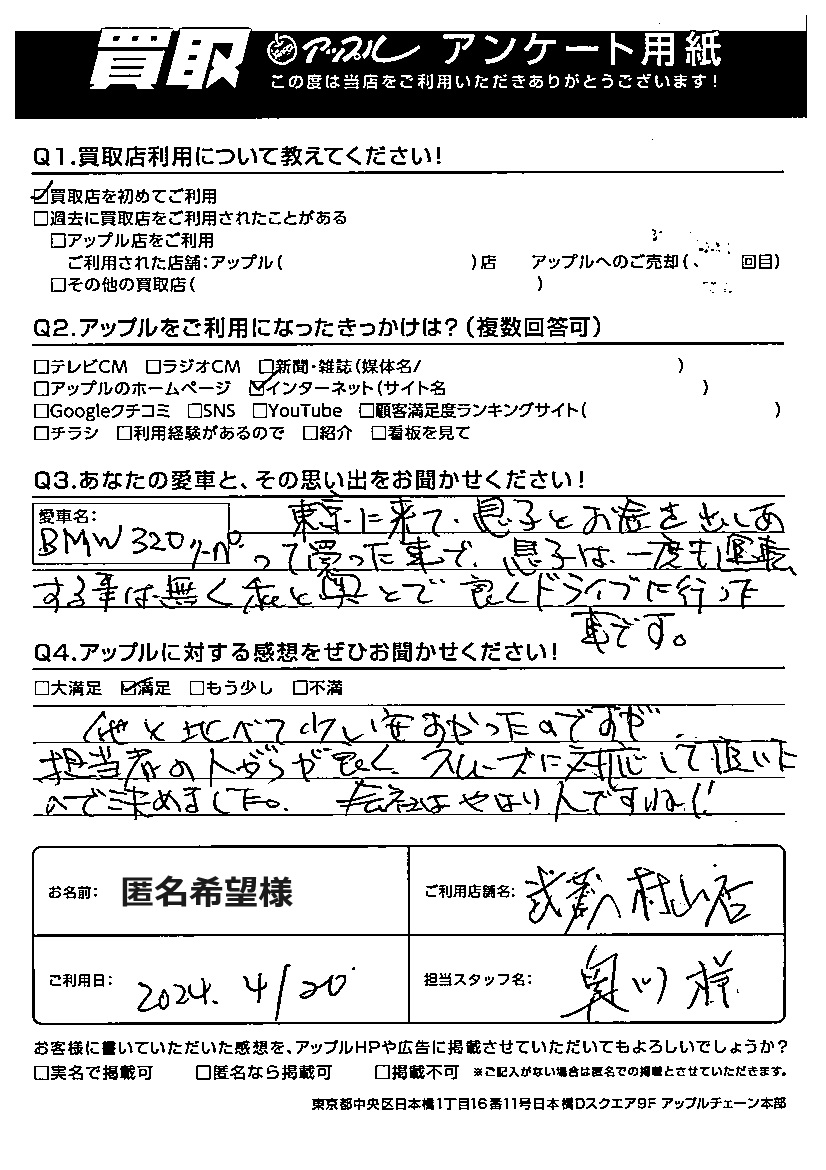 買取 アップル アンケート用紙
この度は当店をご利用いただきありがとうございます!
Q1.買取店利用について教えてください!
☑買取店を初めてご利用
□過去に買取店をご利用されたことがある
□アップル店をご利用
ご利用された店舗:アップル( )店 アップルへのご売却( 回目)
□その他の買取店( )
Q2.アップルをご利用になったきっかけは?(複数回答可)
□テレビCM □ラジオCM □新聞・雑誌(媒体名/ )
□アップルのホームページ ☑インターネット(サイト名 )
□Googleクチコミ □SNS □YouTube □顧客満足度ランキングサイト( )
□チラシ □利用経験があるので □紹介 □看板を見て
Q3.あなたの愛車と、その思い出をお聞かせください!
愛車名:
BMW320ツーリング
東京に来て、息子とお金を出しあ
って買った車で、息子は、一度も運転
する事は無く私と奥とで良くドライブに行った
車です。
Q4.アップルに対する感想をぜひお聞かせください!
□大満足 ☑満足 □もう少し □不満
他と比べて少し安かったのですが、
担当者の人がらが良く、スムーズに対応して頂いた
ので決めました。会社はやはり人ですね!!
お名前: 匿名希望様 ご利用店舗名: 武蔵村山店
ご利用日: 2024.4/20 担当スタッフ名: 奥川様
お客様に書いていただいた感想を、アップルHPや広告に掲載させていただいてもよろしいでしょうか?
□実名で掲載可 □匿名なら掲載可 □掲載不可 ※ご記入がない場合は匿名での掲載とさせていただきます。
東京都中央区日本橋1丁目16番11号日本橋Dスクエア9F アップルチェーン本部